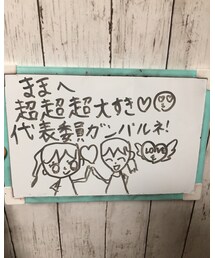 ままへ
超超超大すき♡
代表委員ガンバルネ!
LOVE